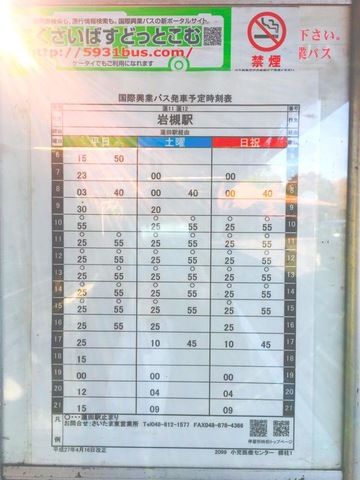 くさいばすどっとこむ
運行情報検索も。国際興業バスの新ポータルサイト。
http://5931bus.com/
ケータイでもご利用になれます
禁煙
下さい。
バス
国際興業バス発車予定時刻表
岩槻駅
蓮田駅経由
平日 土曜 日祝
6 15 50 6
7 23 00 00 7
8 03 40 00 40 00 40 8
9 30 20 9
○ ○ ○
10 55 25 55 25 55 10
○ ○ ○ ○ ○ ○
11 25 55 25 55 25 55 11
12 25 55 25 55 25 55 12
13 25 55 25 55 25 55 13
14 25 55 25 55 25 55 14
15 25 55 25 55 25 55 15
16 25 55 25 25 16
17 25 10 45 10 45 17
18 15 18
19 00 00 00 19
20 12 04 04 20
21 15 09 09 21
凡例
○・・・蓮田駅止まり
お問合せ:さいたま東営業所 Tel048-812-1577 FAX048-878-4366
停留所時刻トップページ
平成27年4月16日改正
2099 小児医療センター